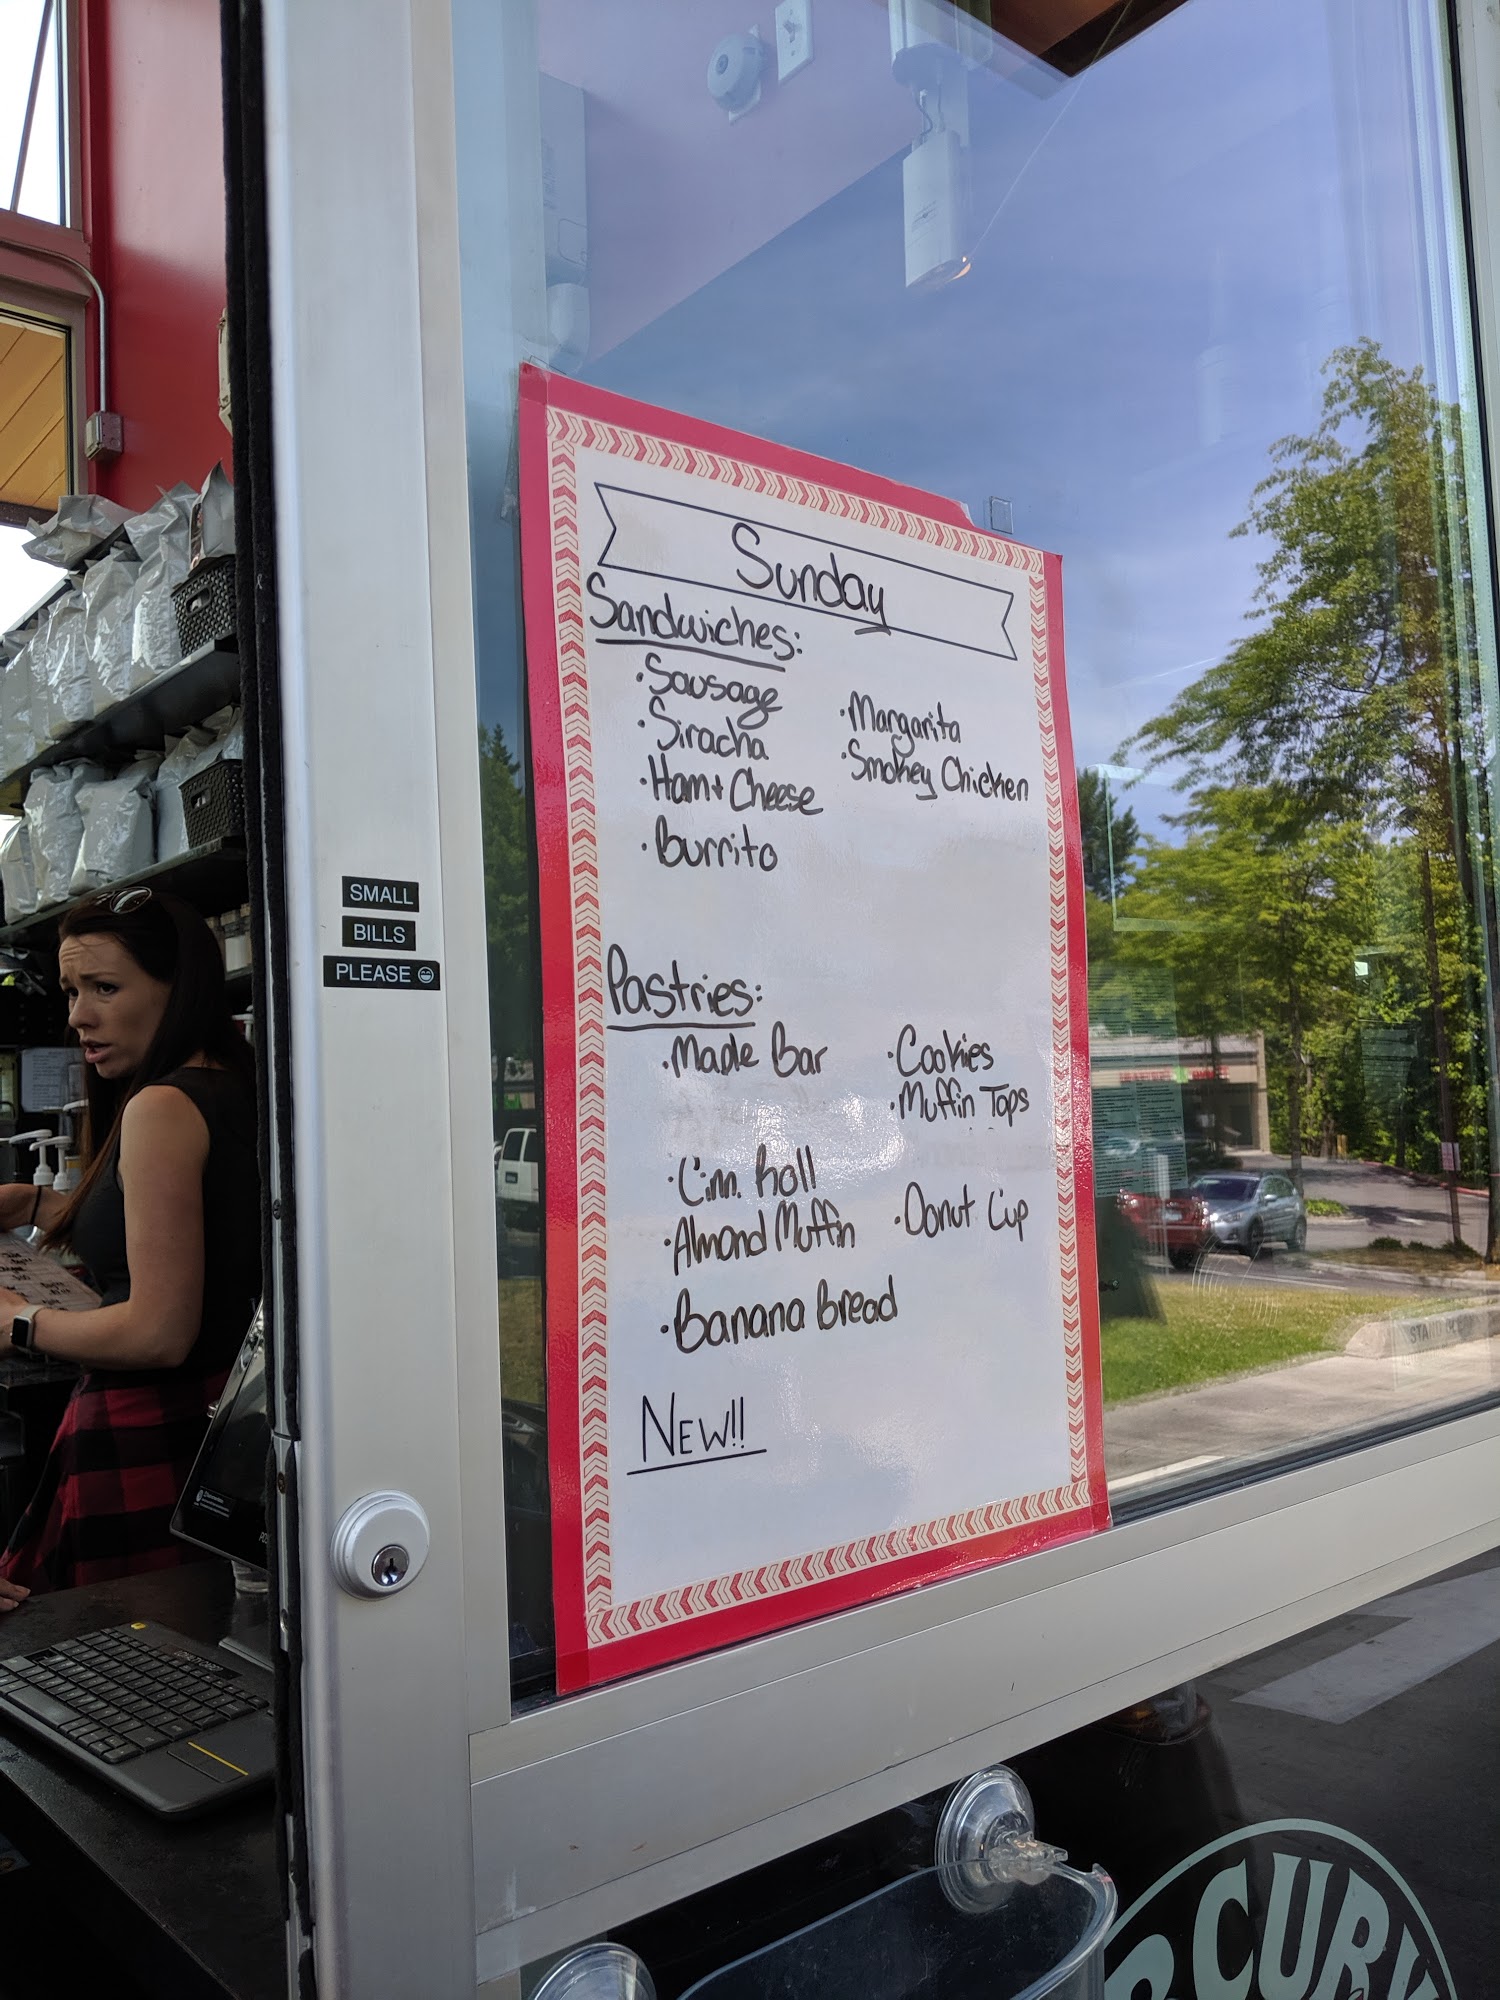 Sunday
Sandwiches:
·Sausage
·Siracha
·Ham + Cheese
·Burrito
·Margarita
·Smokey Chicken
Pastries:
·Made Bar
·Cinn. Roll
·Almond Muffin
·Banana Bread
·Cookies
·Muffin Tops
·Donut Cup
NEW!!
SMALL
BILLS
PLEASE
CUR